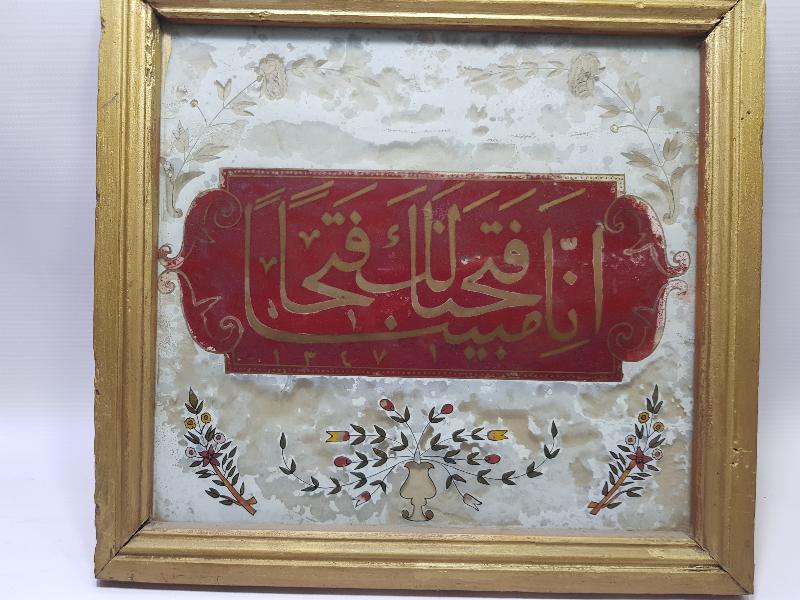 انّا فتحنا لك فتحاً
مبينا
١٣٤٧